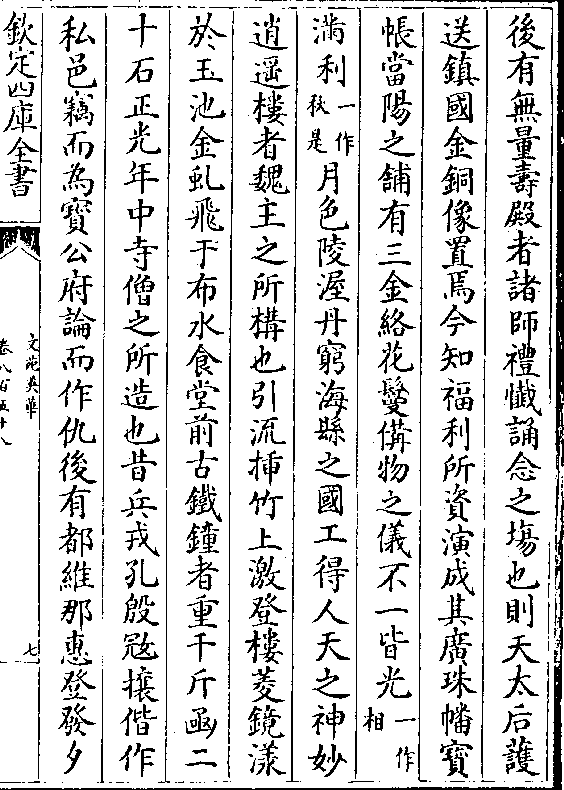 後有無量壽殿者諸師禮懴誦念之塲也則天太后䕶
送鎮國金銅像置焉今知福利所資演成其廣珠幡寳
帳當陽之舖有三金絡花鬘偹物之儀不一皆光一作相
滿利一作秋是月色陵渥丹窮海縣之國工得人天之神妙
逍遥樓者魏主之所構也引流揷竹上激登樓菱鏡漾
於玉池金虬飛于布水食堂前古鐵鐘者重千斤凾二
十石正光年中寺僧之所造也昔兵戎孔殷冦攘偕作
私邑竊而為寳公府論而作仇後有都維那惠登發夕
欽定四庫全書
文苑英華
卷八百五十八
七